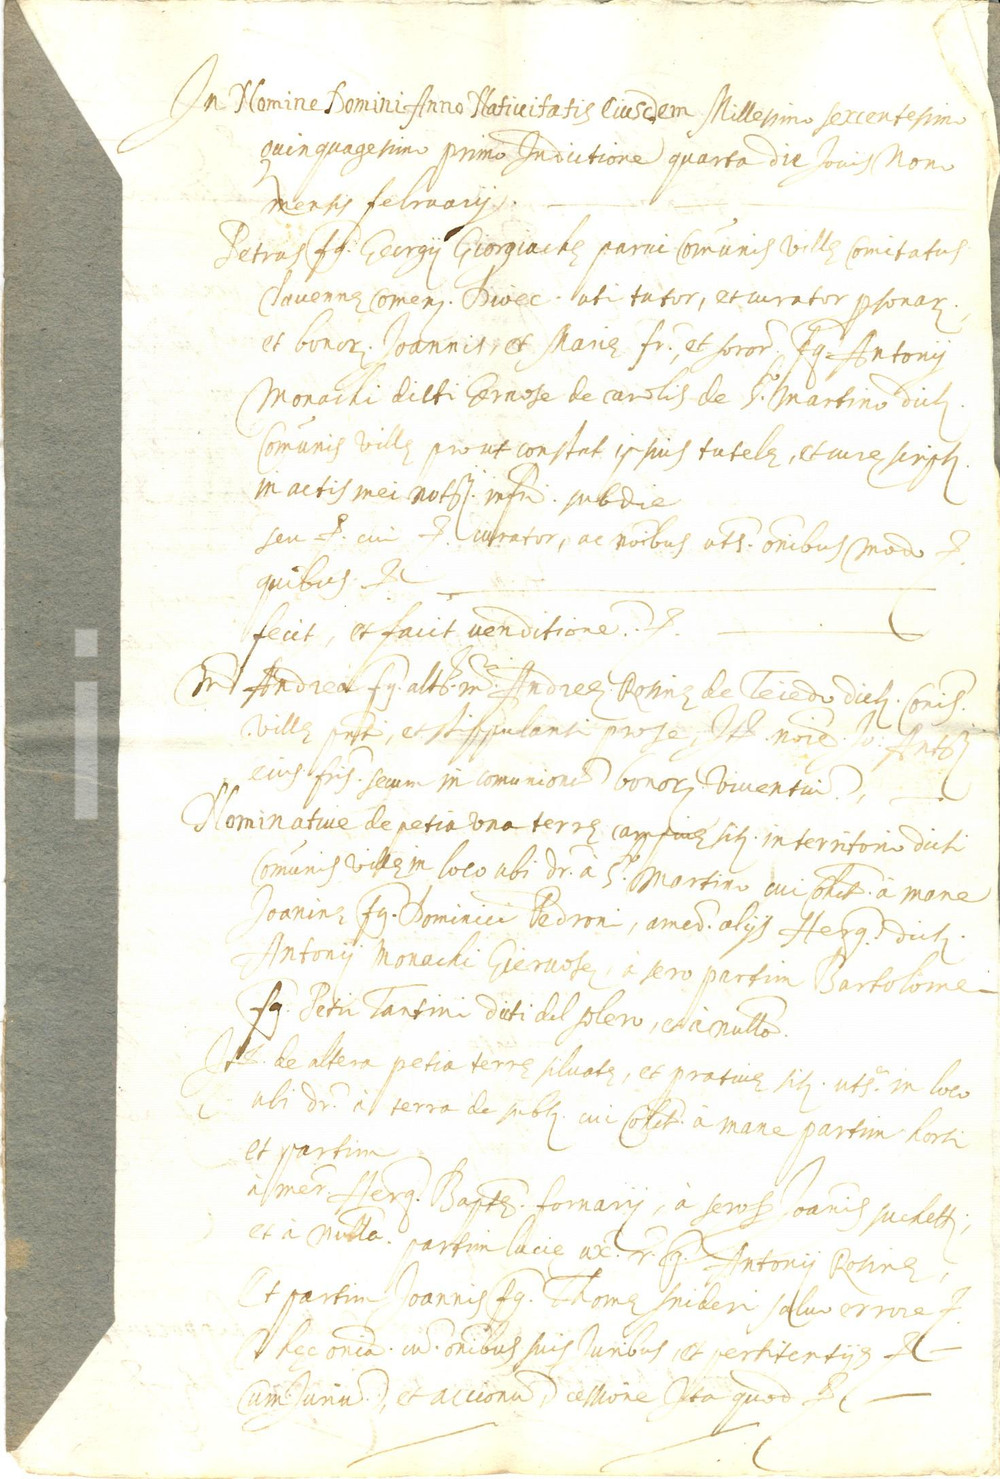 In Nomine Domini Anno Nativitatis Eiusdem Millesimo sexcentesimo
quinquagesimo primo Indictione quarta die Jovis Nono
mensis februarij.
Petrus fq. Georgij Giorgiachę parui Comunis Villę Comitatus
Clauennę Comens. Dioec. uti tutor, et curator psonar.
et bonor. Joannis, et Marię fr., et soror. fq. Antonij
Monachi dicti Gernose de carolis de S. Martino dicti
Comunis Villę prout constat ipsius tutelę, et curę script.
in actis mei not. infri. sub die
seu cui curator, ac noibus uts. omibus modo
quibus
fecit, et facit venditione.
Andrea fq. alt. m. Andreę Rosinę de Teiedo dicti Cois.
Villę pnti, et stippulanti pro se, It. noie Jo. Ant.
eius fris. secum in comunione bonor. viventiu,
Nominative de petia vna terrę campiuę sit. in territorio dicti
Comunis Villę in loco ubi dr. à S. Martino cui cohet. à mane
Joaninę fq. Dominici Pedroni, a med. alijs Herq. dicti
Antonij Monachi Giernosę, à sero partim Bartolomei
fq. Petri Tantini dicti del solero, et à nulla.
It. de altera petia terrę siluatę, et pratiuę sit. uts. in loco
ubi dr. à terra de subt. cui cohet. à mane partim horti
et partim
à mer. Herq. Baptę. fornarij, à sero Joanis suchetti,
et à nulla. partim lucię ux. r. fq. Antonij Rosinę,
Et partim Joannis fq. Thomę snideri saluo errore
hęc onia. cu. omibus suis Juribus, et pertitentijs
Cum Juriu, et accionu cessione Ita quod